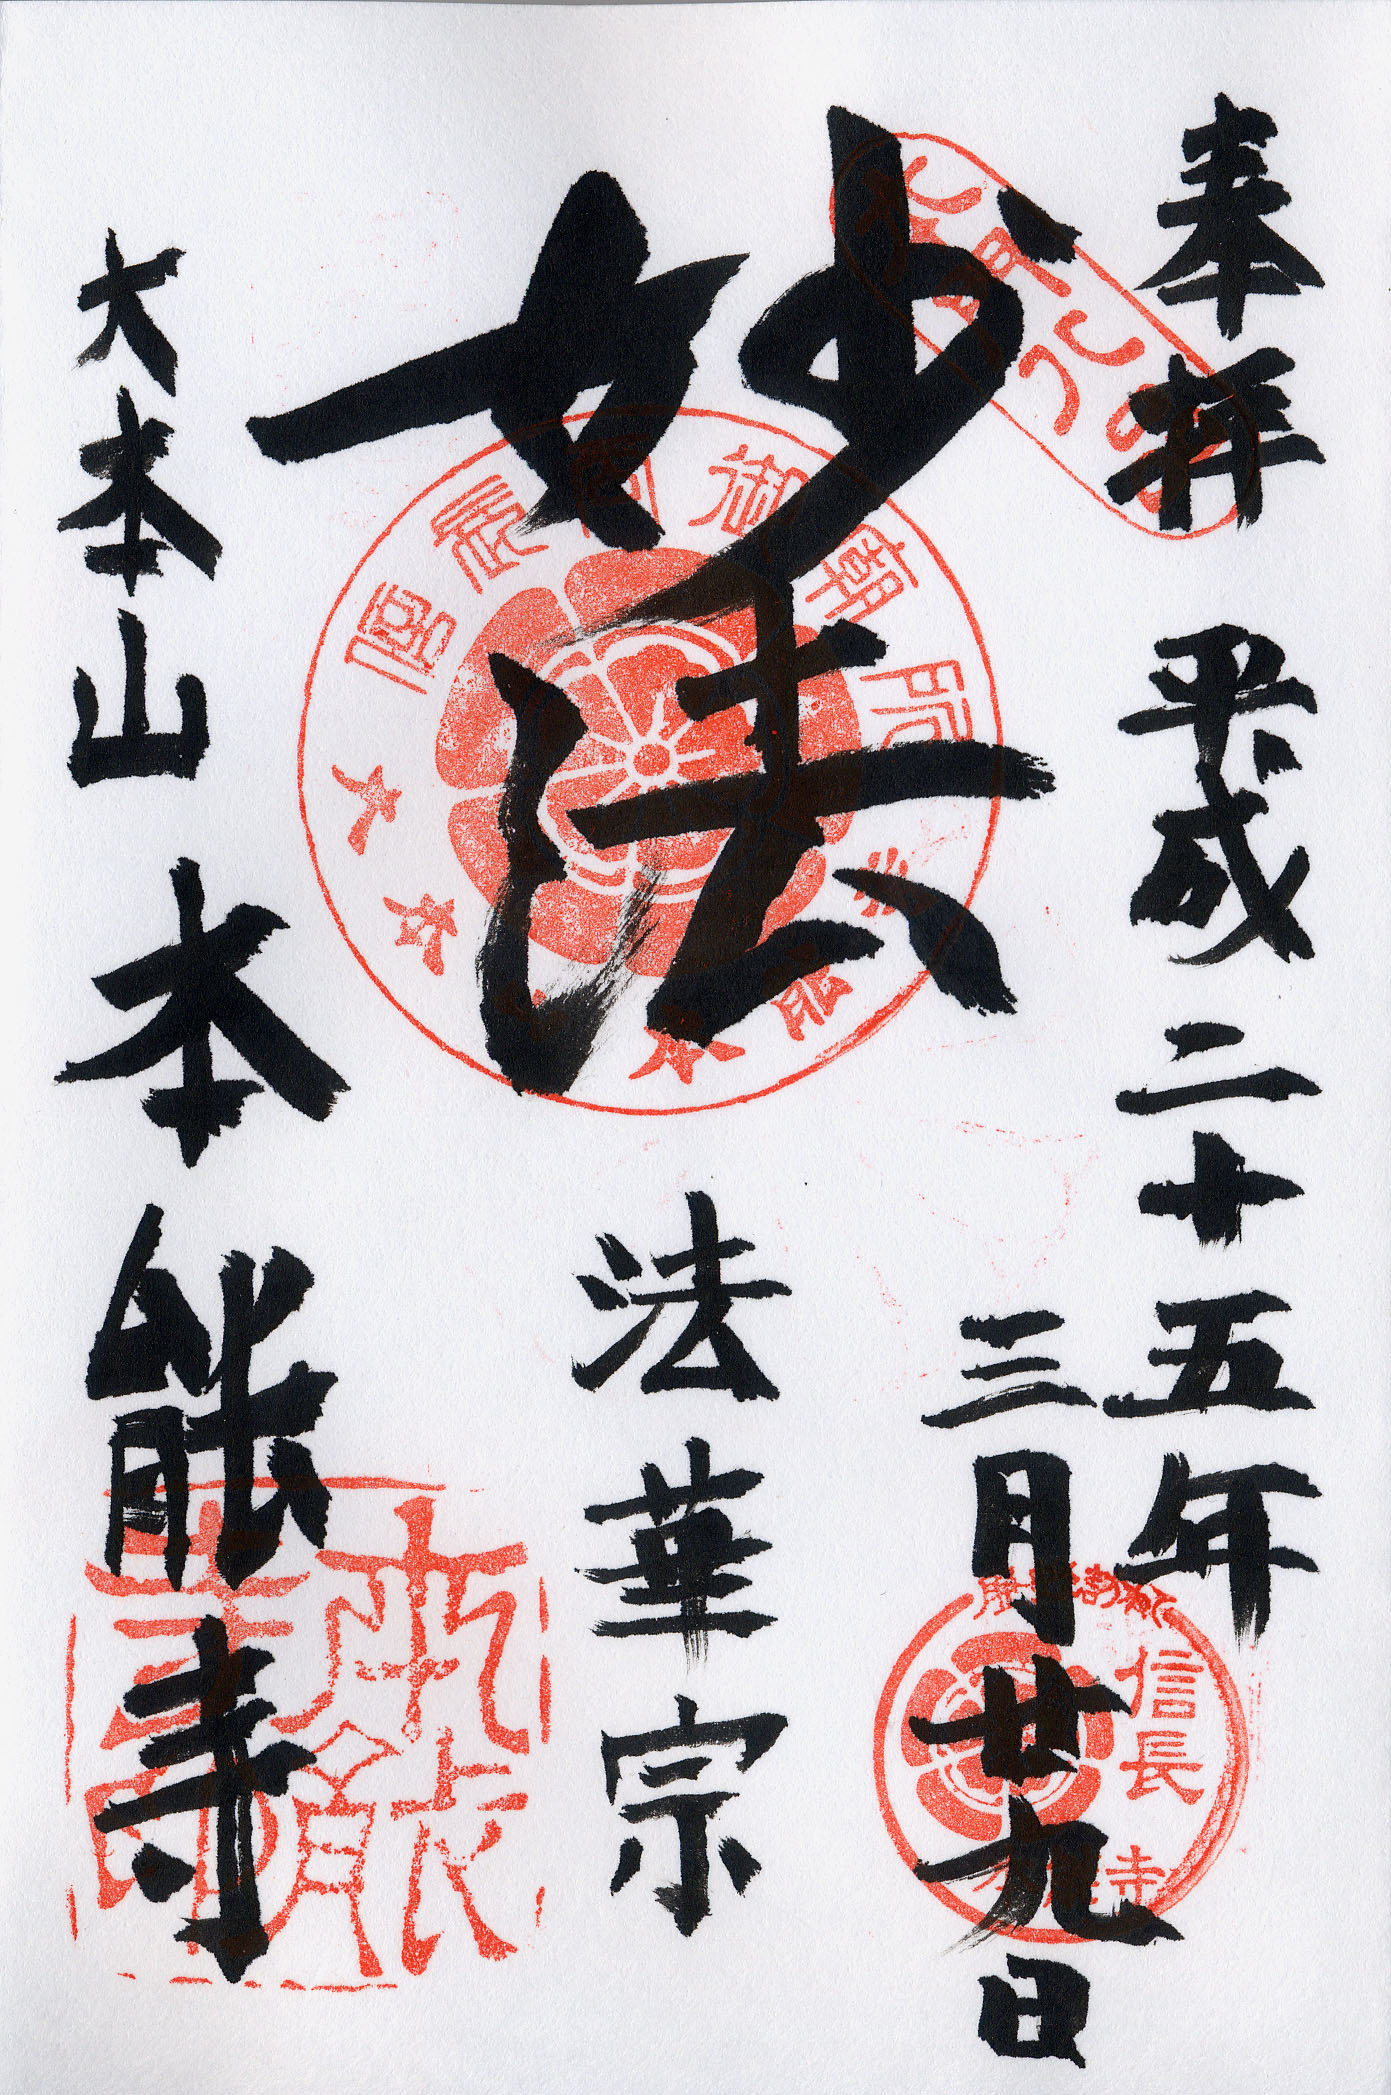 奉拝 平成二十五年
三月廿九日
妙法
法華宗
大本山 本能寺
信長